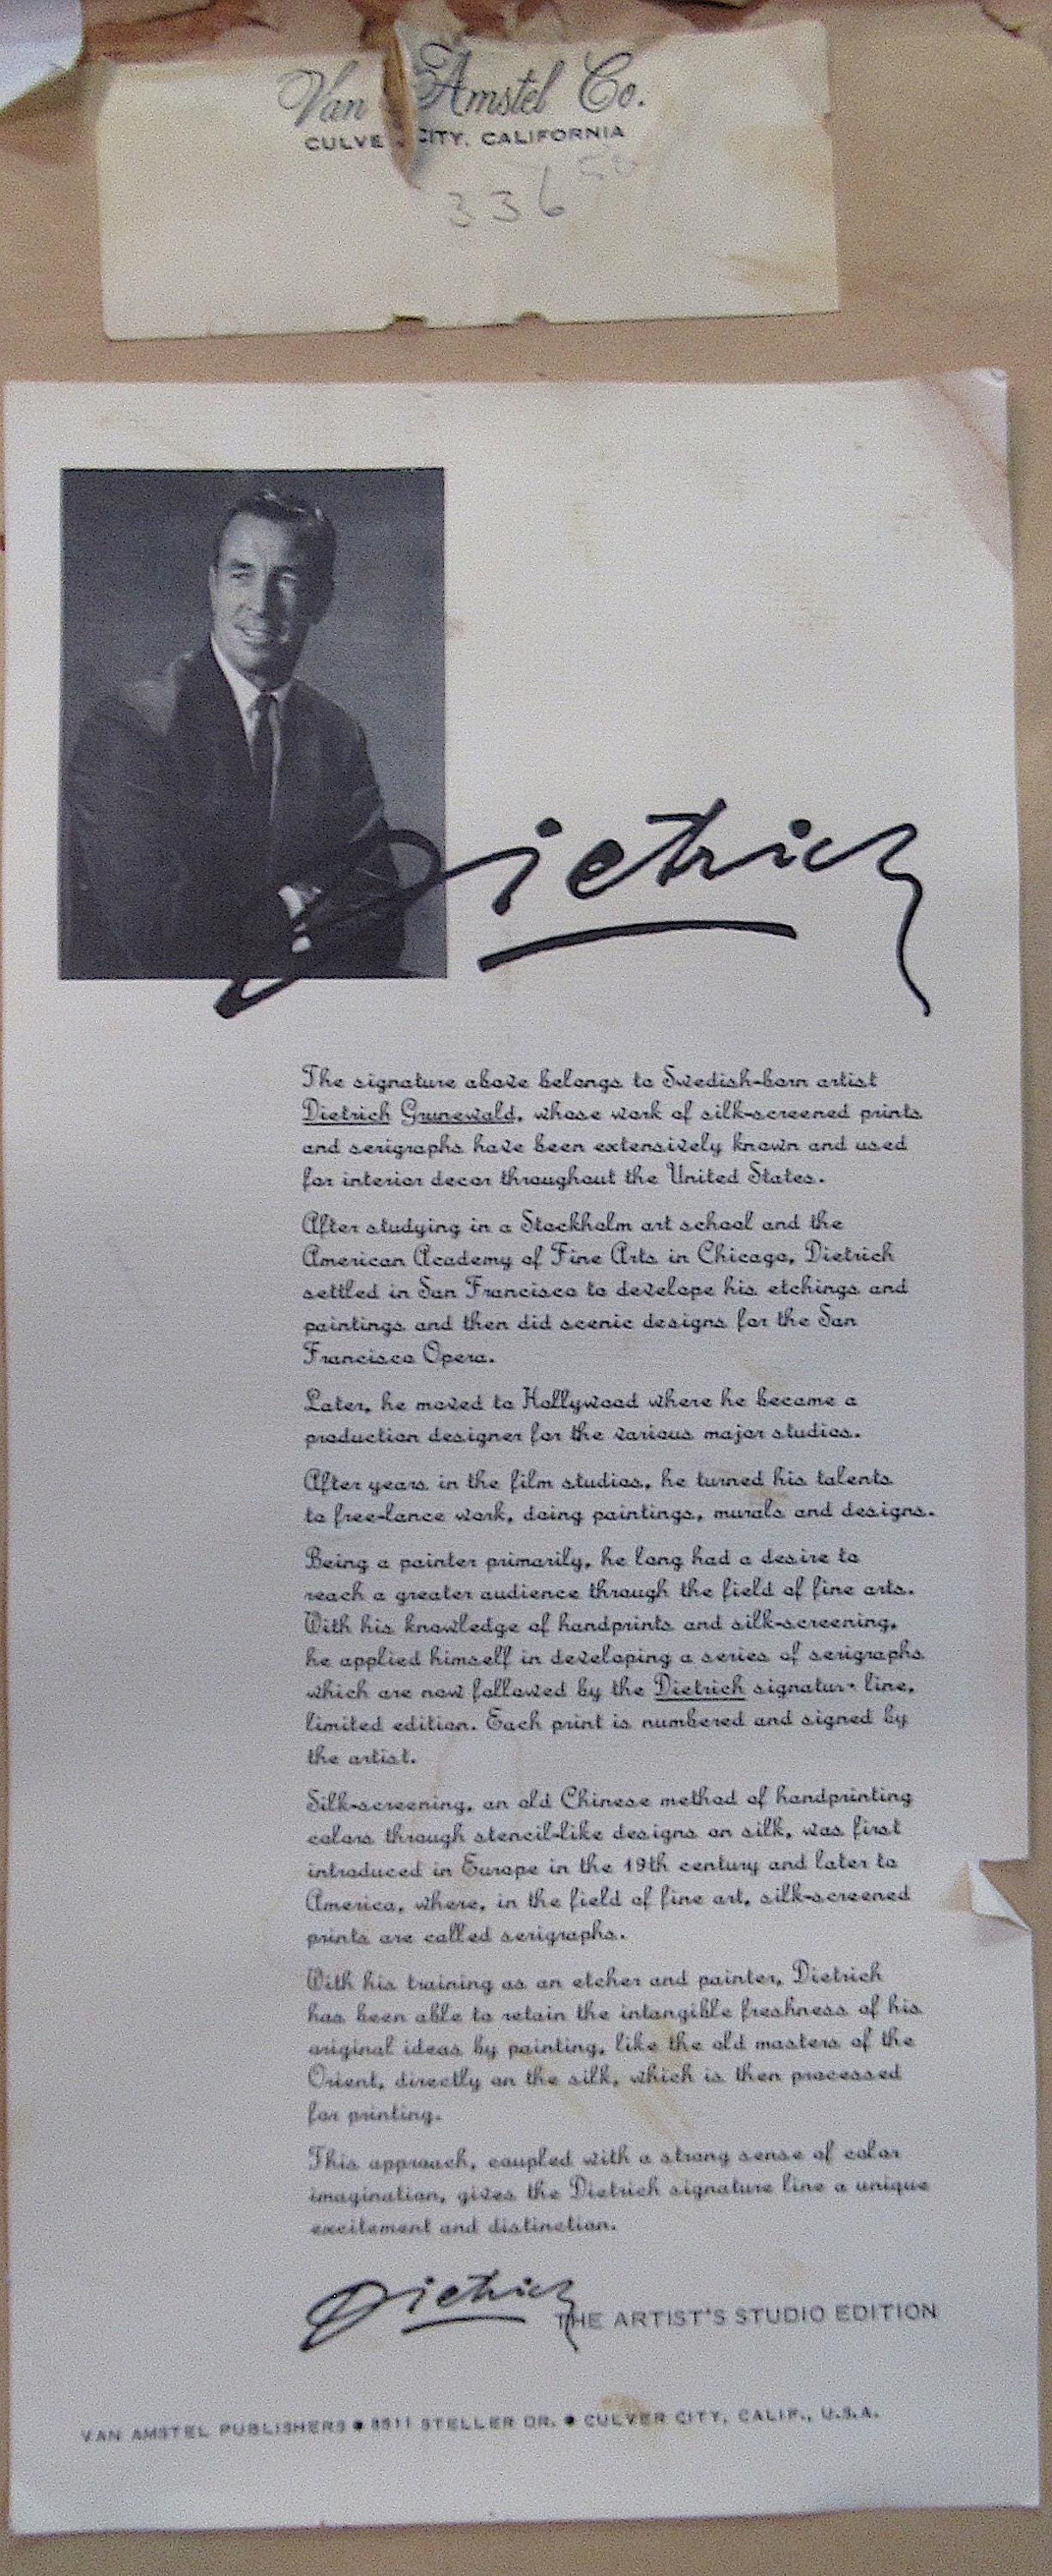 Van Amstel Co.
CULVE CITY, CALIFORNIA
336 50
Dietrich
The signature above belongs to Swedish-born artist
Dietrich Grunewald, whose work of silk-screened prints
and serigraphs have been extensively known and used
for interior decor throughout the United States.
After studying in a Stockholm art school and the
American Academy of Fine Arts in Chicago, Dietrich
settled in San Francisco to develope his etchings and
paintings and then did scenic designs for the San
Francisco Opera.
Later, he moved to Hollywood where he became a
production designer for the various major studios.
After years in the film studios, he turned his talents
to free-lance work, doing paintings, murals and designs.
Being a painter primarily, he long had a desire to
reach a greater audience through the field of fine arts.
With his knowledge of handprints and silk-screening,
he applied himself in developing a series of serigraphs
which are now followed by the Dietrich signature line,
limited edition. Each print is numbered and signed by
the artist.
Silk-screening, an old Chinese method of handprinting
colors through stencil-like designs on silk, was first
introduced in Europe in the 19th century and later to
America, where, in the field of fine art, silk-screened
prints are called serigraphs.
With his training as an etcher and painter, Dietrich
has been able to retain the intangible freshness of his
original ideas by painting, like the old masters of the
Orient, directly on the silk, which is then processed
for printing.
This approach, coupled with a strong sense of color
imagination, gives the Dietrich signature line a unique
excitement and distinction.
Dietrich THE ARTIST'S STUDIO EDITION
VAN AMSTEL PUBLISHERS • STELLER DR. • CULVER CITY, CALIF., U.S.A.